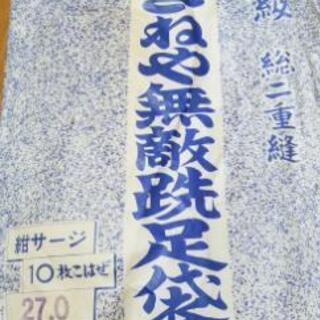 級 総二重縫
ねや無敵跣足袋
紺サージ
10枚こはぜ
27.0